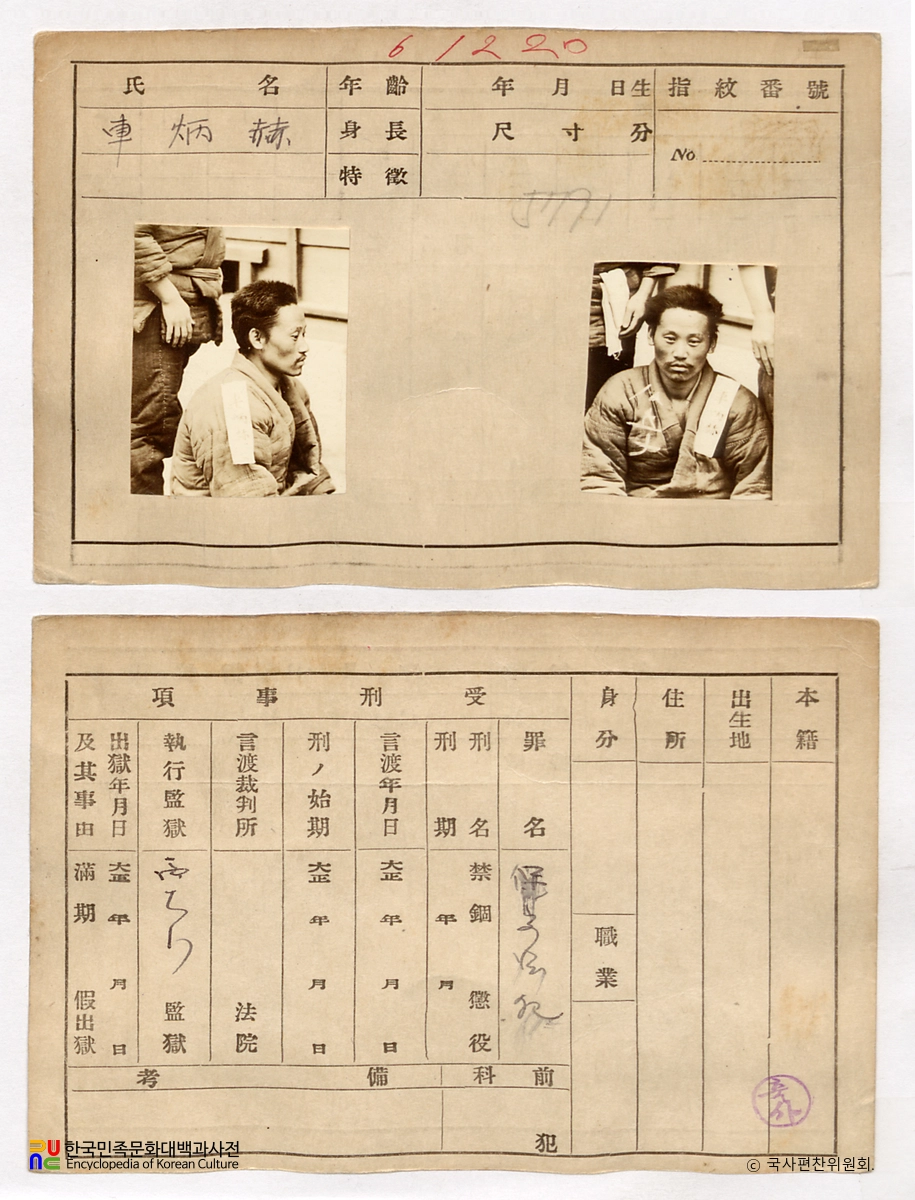 6 1220
氏名 年齡 年月日生 指紋番號
車炳赫 身長 尺寸分 No
特徵
5771
本籍
出生地
住所
身分
職業
受刑事項
罪名
刑名 禁錮 懲役
刑期 年 月
言渡年月日 大正 年 月 日
刑ノ始期 大正 年 月 日
言渡裁判所 法院
執行監獄 監獄
出獄年月日 大正 年 月 日
及其事由 滿期 假出獄
前科 備考
犯
한국민족문화대백과사전
Encyclopedia of Korean Culture
© 국사편찬위원회.